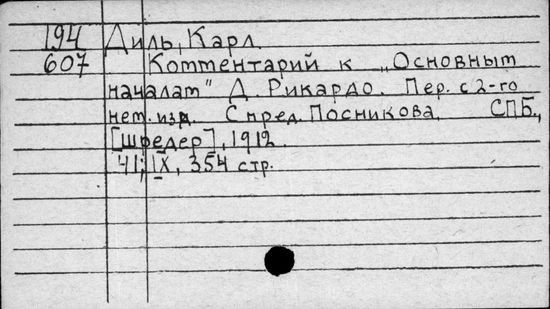 194 Диль, Карл.
607 Комментарий к „Основным
началам" Д. Рикардо. Пер. с 2-го
нем. изд. С пред. Посникова. СПБ.,
[Шредер], 1912.
41; IX, 354 стр.